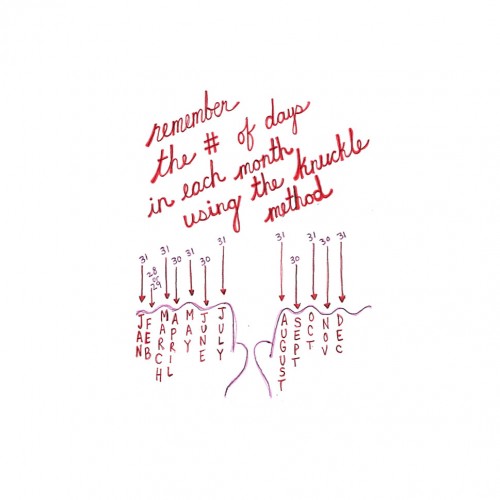 remember
the # of days
in each month
using the knuckle
method
31 28 or 29 31 30 31 30 31 31 30 31 30 31
JAN FEB MARCH APRIL MAY JUNE JULY AUGUST SEPT OCT NOV DEC